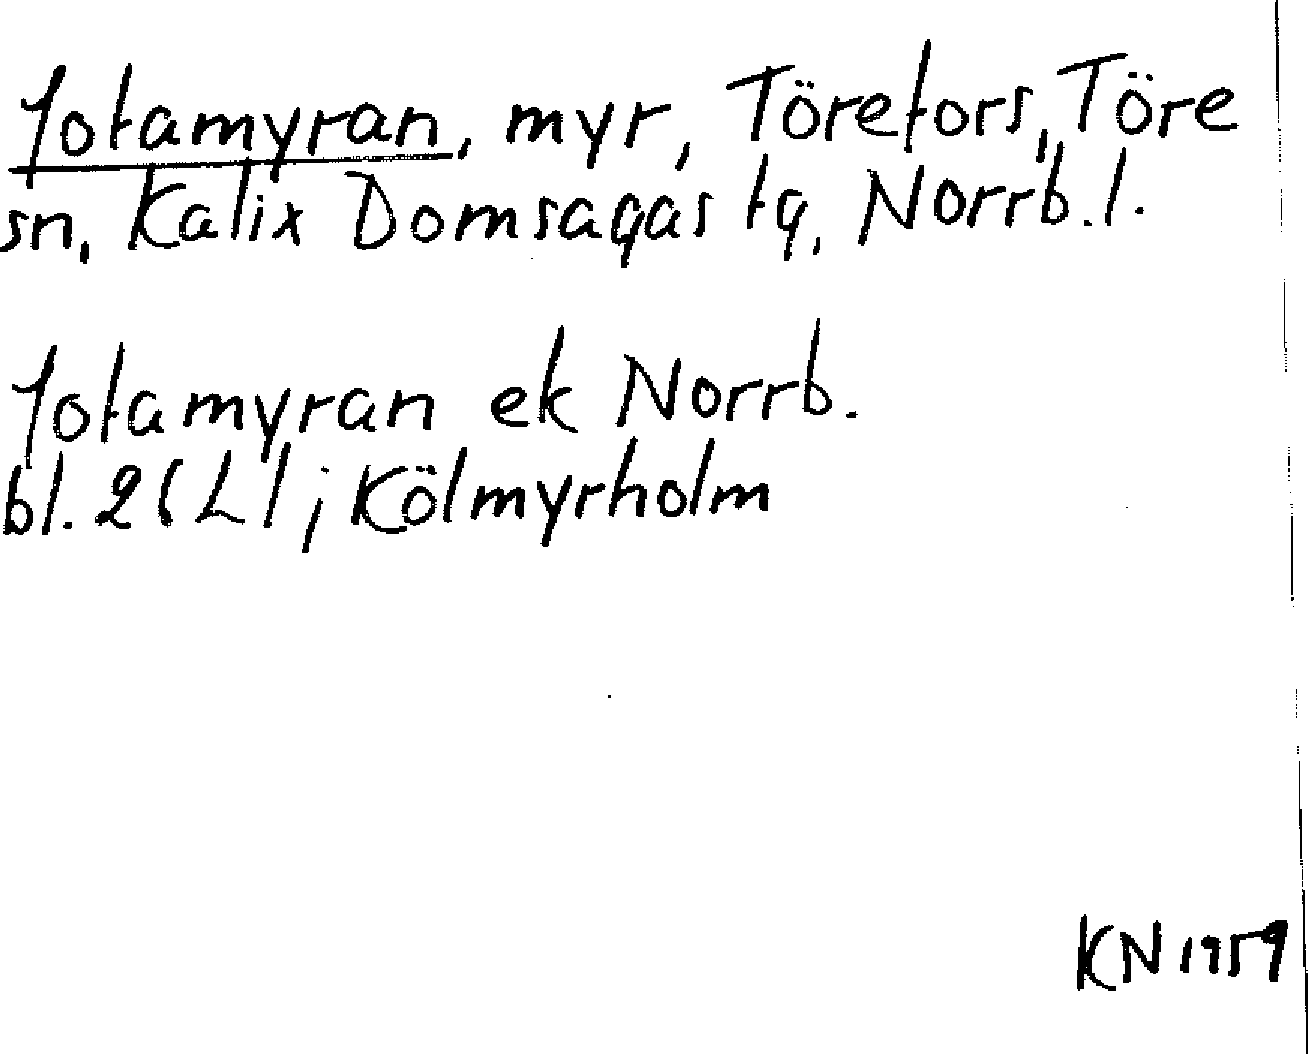 Jotamyran, myr, Törefors, Töre
sn, Kalix Domsagas tg, Norrb. l.
Jotamyran ek Norrb.
bl. 2(L); Kölmyrholm
KN 1959